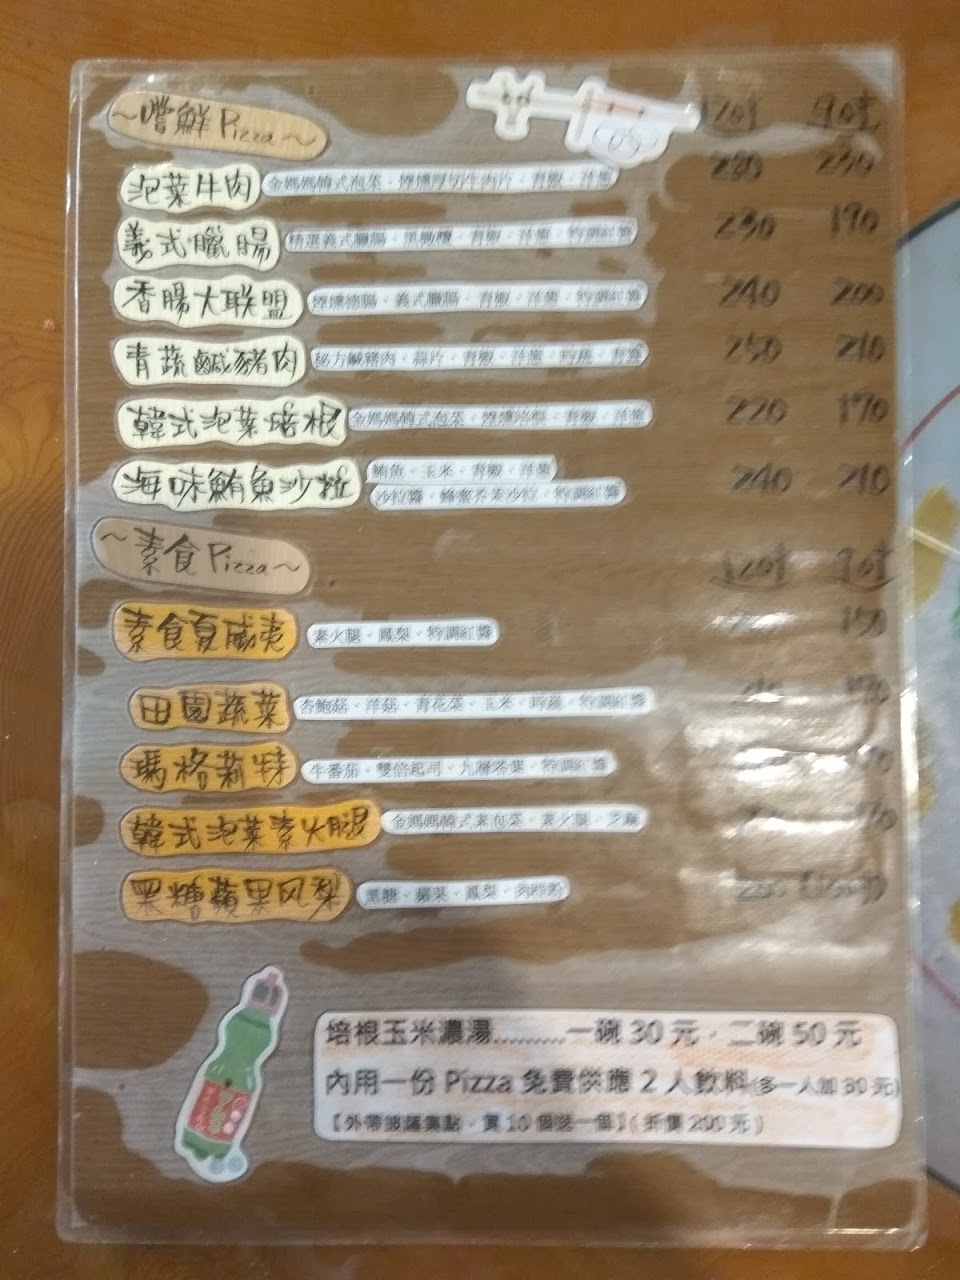 ～嚐鮮Pizza～ 12吋 9吋
泡菜牛肉 金媽媽韓式泡菜、煙燻厚切牛肉片、青椒、洋蔥 280 250
義式臘腸 精選義式臘腸、黑橄欖、青椒、洋蔥、特調紅醬 230 190
香腸大联盟 煙燻德腸、義式臘腸、青椒、洋蔥、特調紅醬 240 200
青蔬鹹豬肉 秘方鹹豬肉、蒜片、青椒、洋蔥、時蔬、青醬 250 210
韓式泡菜培根 金媽媽韓式泡菜、煙燻培根、青椒、洋蔥 220 170
海味鮪魚沙拉 鮪魚、玉米、青椒、洋蔥 240 210
沙拉醬、蜂蜜芥末沙拉、特調紅醬
～素食Pizza～ 12吋 9吋
素食夏威夷 素火腿、鳳梨、特調紅醬 150
田園蔬菜 杏鮑菇、洋菇、青花菜、玉米、時蔬、特調紅醬
瑪格莉特 牛番茄、雙倍起司、九層塔葉、特調紅醬
韓式泡菜素火腿 金媽媽韓式素泡菜、素火腿
黑糖蘋果风梨 黑糖、蘋果、鳳梨、肉桂粉
培根玉米濃湯..........一碗 30 元，二碗 50 元
內用一份 Pizza 免費供應 2 人飲料(多一人加 30 元)
【外帶披薩集點，買 10 個送一個】( 折價 200 元 )